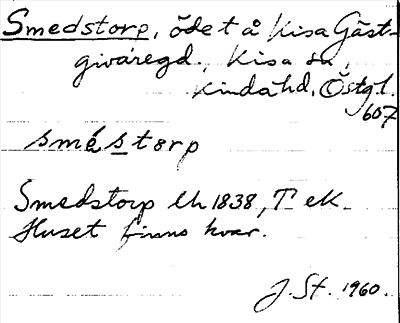 Smedstorp, öde t å Kisa Gäst-
givaregd., Kisa sn,
Kinda hd, Östgl.
607
sméstorp
Smedstorp lh 1838, T ek.
Huset finns kvar.
J. St. 1960.